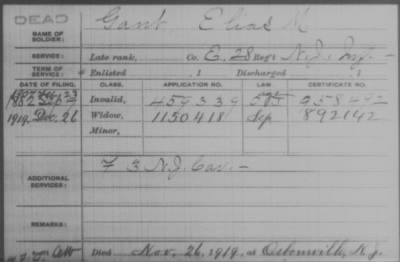 DEAD
NAME OF SOLDIER: Gant, Elias M
SERVICE: Late rank, Co. E, 28 Reg't N.J. Inf. -
TERM OF SERVICE: Enlisted , 1 Discharged , 1
DATE OF FILING. CLASS. APPLICATION NO. LAW CERTIFICATE NO.
1882 Invalid, 459339 958492
1919, Dec. 26 Widow, 1150418 Sep 892142
Minor,
ADDITIONAL SERVICES: F 3 N.J. Cav. -
REMARKS:
Died Nov. 26, 1919, at Osbornville, N.J.